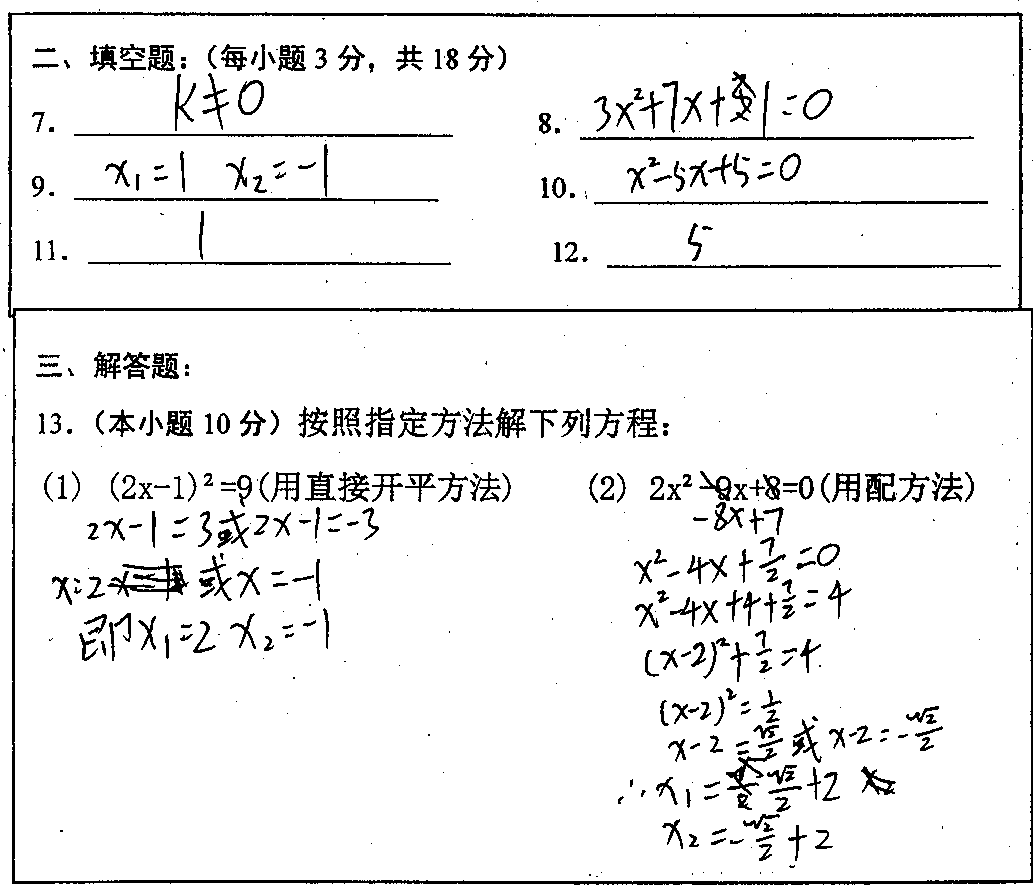 二、填空题：（每小题 3 分，共 18 分）
7. k≠0
8. 3x²+7x+1=0
9. x₁=1 x₂=-1
10. x²-5x+5=0
11. 1
12. 5
三、解答题：
13.（本小题 10 分）按照指定方法解下列方程：
(1) (2x-1)²=9(用直接开平方法)
2x-1=3或2x-1=-3
x=2 或x=-1
即x₁=2 x₂=-1
(2) 2x²-9x+8=0(用配方法)
-8x+7
x²-4x+7/2=0
x²-4x+4+7/2=4
(x-2)²+7/2=4
(x-2)²=1/2
x-2=√2/2或x-2=-√2/2
∴x₁=√2/2+2
x₂=-√2/2+2